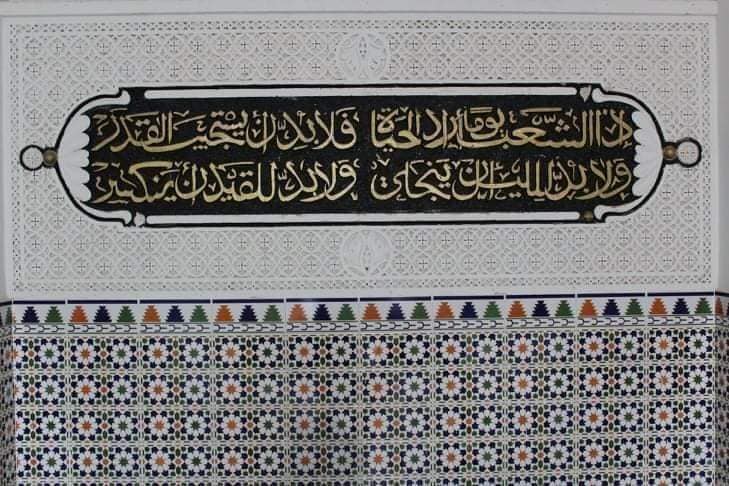 إذا الشعب يوماً أراد الحياة فلا بد أن يستجيب القدر
ولا بد لليل أن ينجلي ولا بد للقيد أن ينكسر